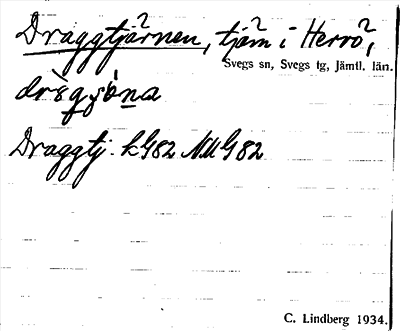 Draggtjärnen, tjärn i Herrö,
Svegs sn, Svegs tg, Jämtl. län.
Draggtj. kG82 NMG82
C. Lindberg 1934.